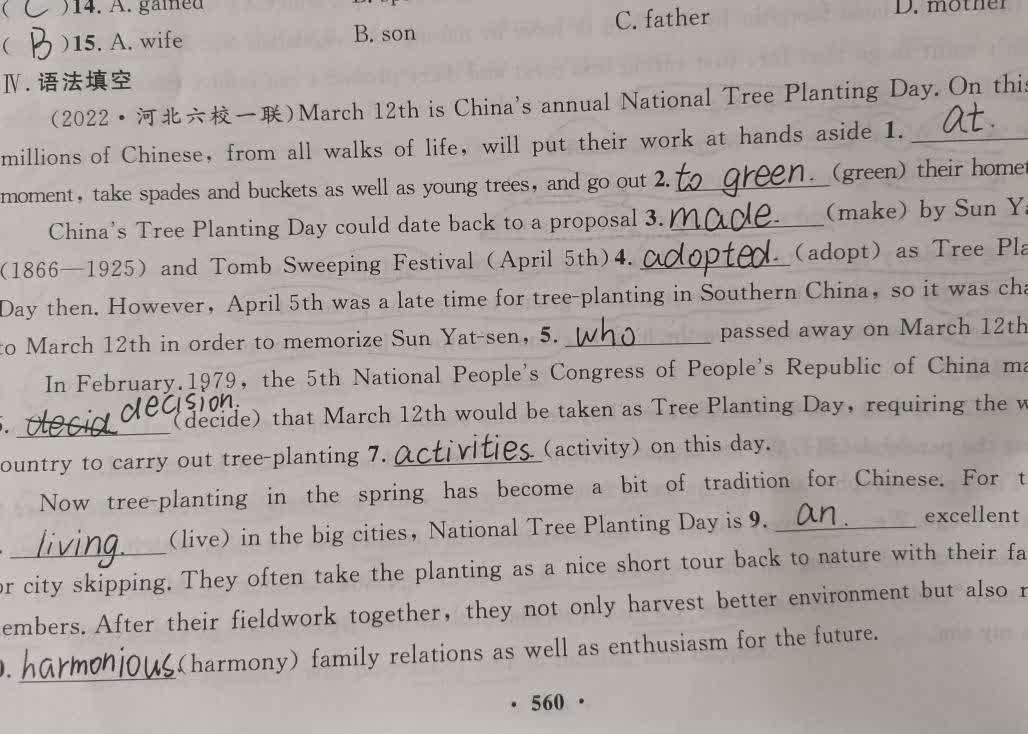 ( C )14. A. gained
( B )15. A. wife B. son C. father D. mother
Ⅳ.语法填空
(2022·河北六校一联)March 12th is China's annual National Tree Planting Day. On this
millions of Chinese, from all walks of life, will put their work at hands aside 1. at.
moment, take spades and buckets as well as young trees, and go out 2. to green. (green) their
China's Tree Planting Day could date back to a proposal 3. made. (make) by Sun
(1866—1925) and Tomb Sweeping Festival (April 5th) 4. adopted. (adopt) as Tree
Day then. However, April 5th was a late time for tree-planting in Southern China, so it was
to March 12th in order to memorize Sun Yat-sen, 5. who passed away on March 12th
In February, 1979, the 5th National People's Congress of People's Republic of China
decid decision. (decide) that March 12th would be taken as Tree Planting Day, requiring the
ountry to carry out tree-planting 7. activities (activity) on this day.
Now tree-planting in the spring has become a bit of tradition for Chinese. For
living. (live) in the big cities, National Tree Planting Day is 9. an. excellent
or city skipping. They often take the planting as a nice short tour back to nature with their
embers. After their fieldwork together, they not only harvest better environment but also
harmonious. (harmony) family relations as well as enthusiasm for the future.
· 560 ·